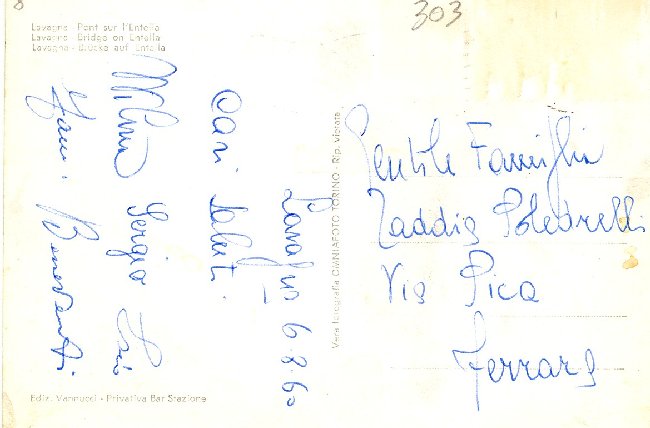 303
Lavagna - Pont sur l'Entella
Lavagna - Bridge on Entella
Lavagna - Brücke auf Entella
Lavagna 6.8.60
Cari Saluti.
Milena Sergio
Fam. Beneventi
Vera Fotografia OMNIAFOTO TORINO - Rip. vietata
Gentile Famiglia
Taddia Poledrelli
Via Pica
Ferrara
Ediz. Vannucci - Privativa Bar Stazione